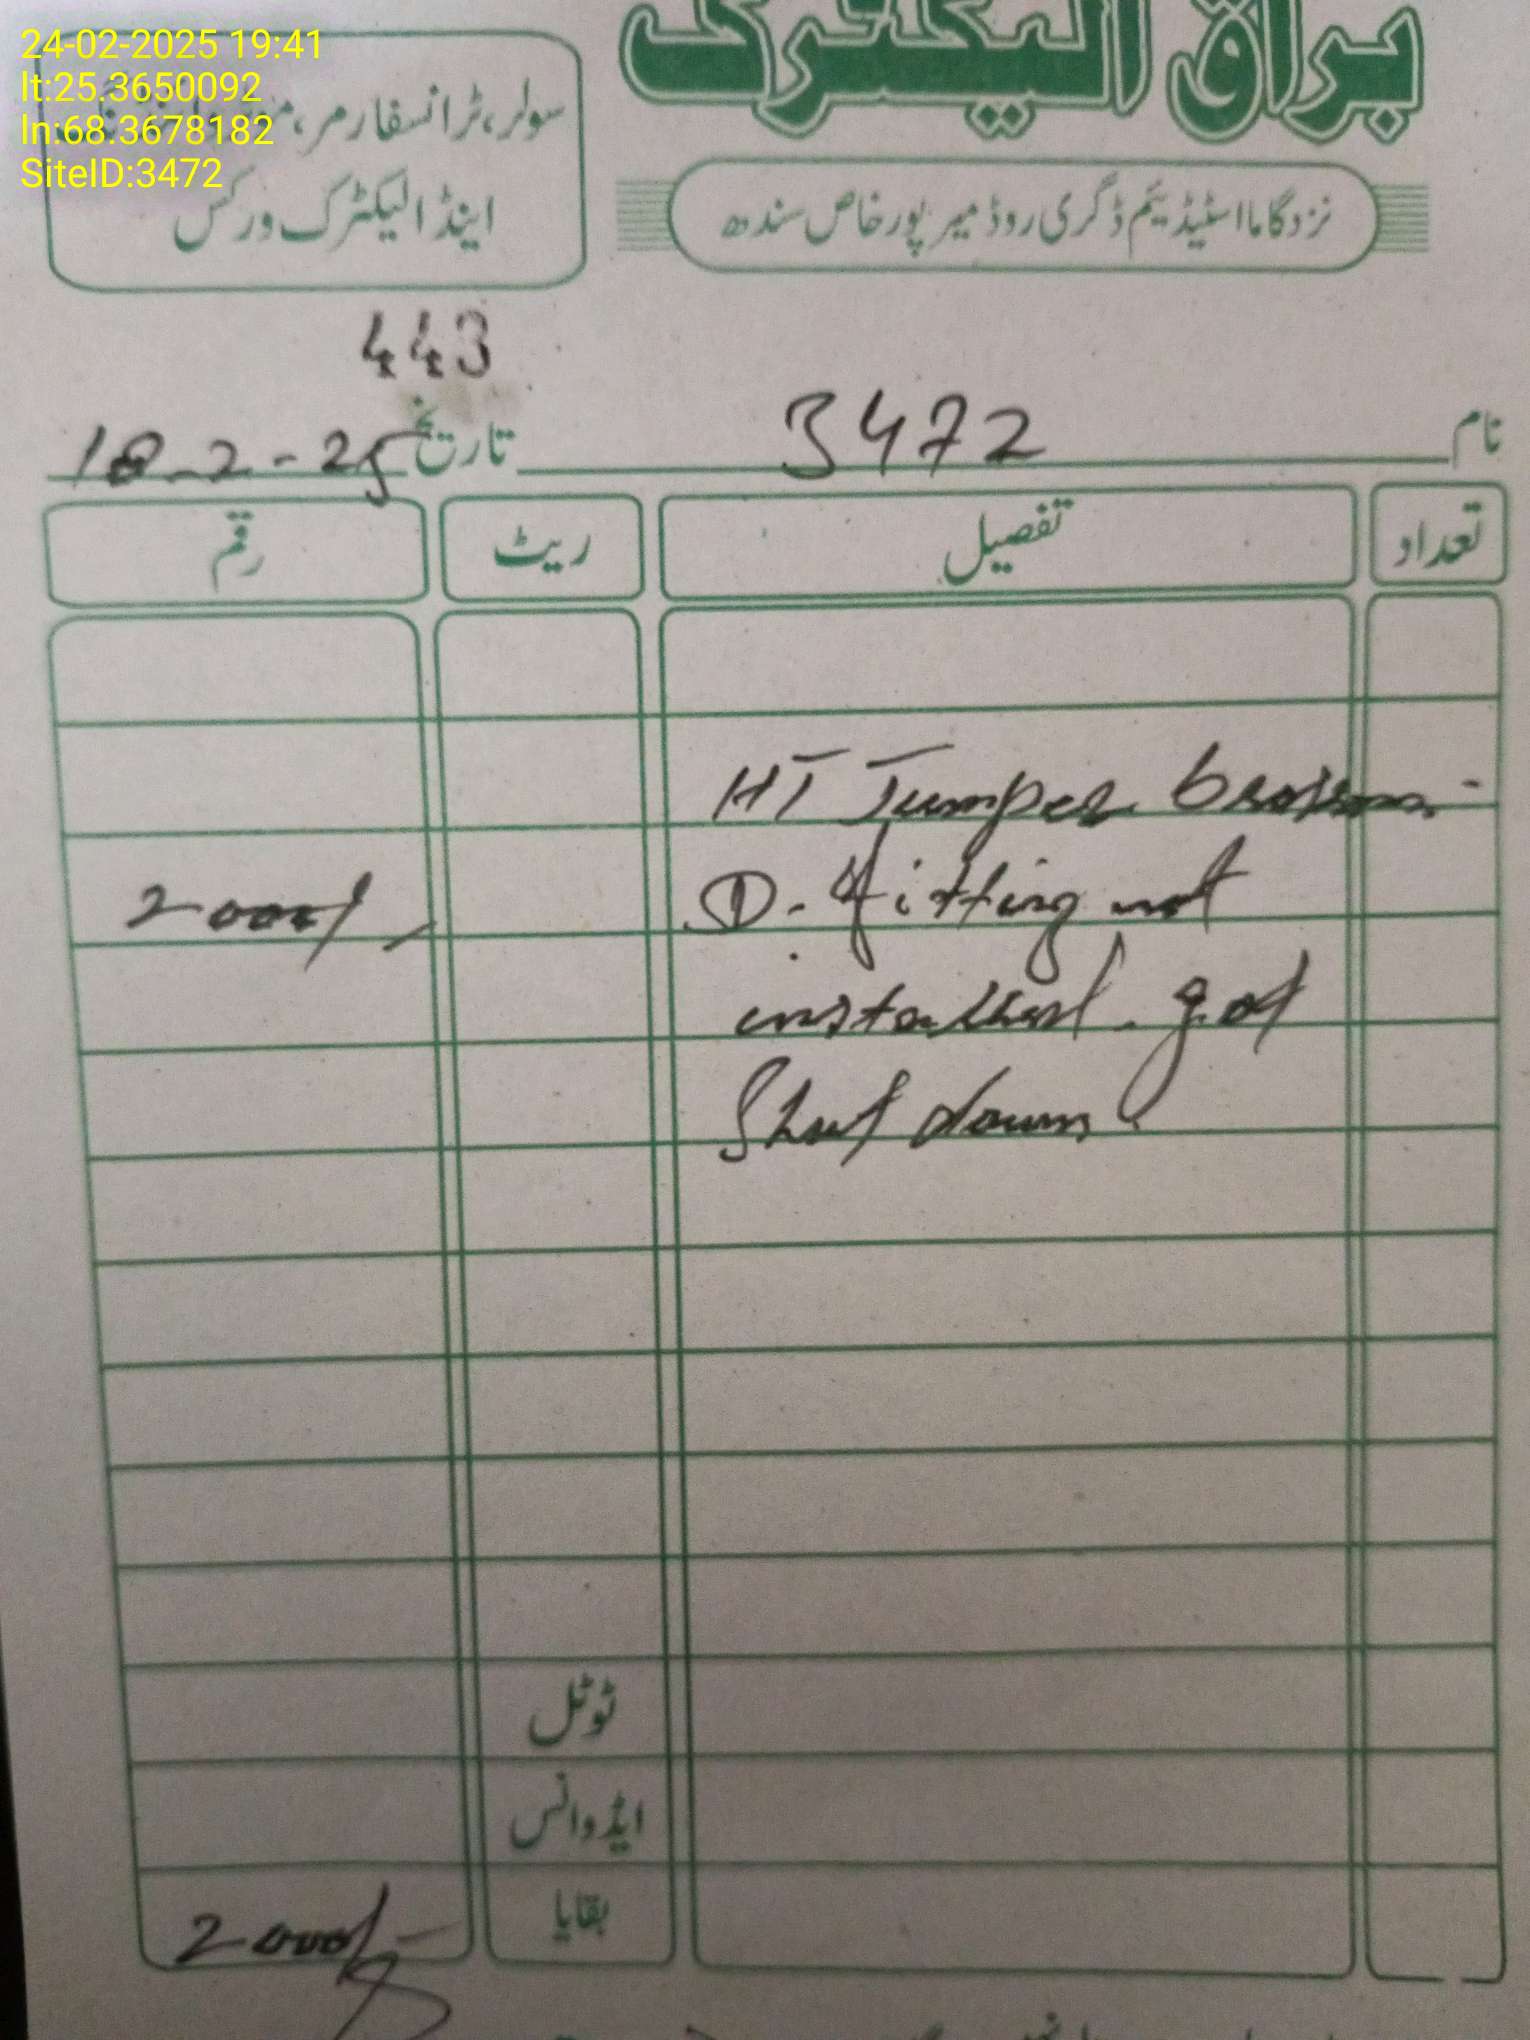 24-02-2025 19:41
lt:25.3650092
ln:68.3678182
SiteID:3472
براق الیکٹرک
سولر، ٹرانسفارمر،
اینڈ الیکٹرک ورکس
نزد گاما اسٹیڈیم ڈگری روڈ میرپورخاص سندھ
443
نام 3472 تاریخ 18-2-25
تعداد تفصیل ریٹ رقم
HT Jumper
D. fitting not 2000/-
installed. got
Shut down
ٹوٹل
ایڈوانس
بقایا 2000/-